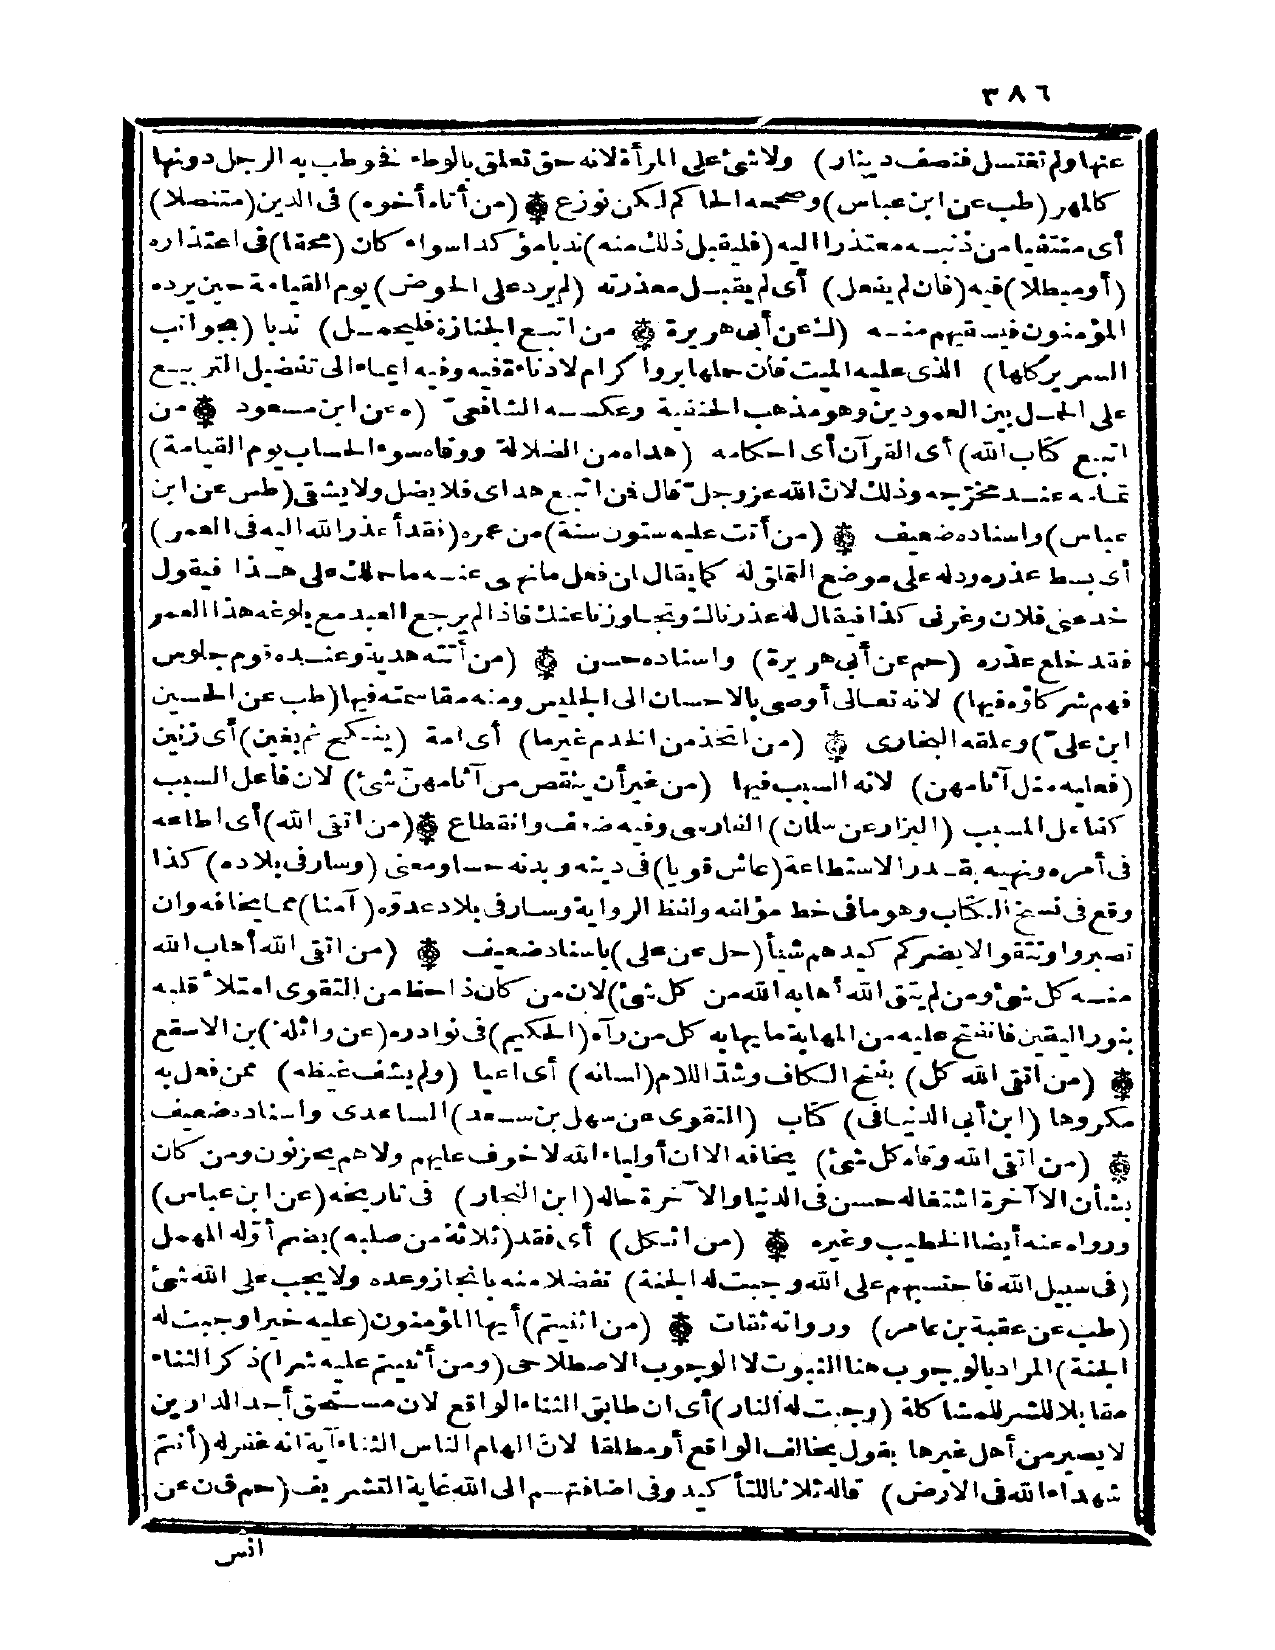 ٣٨٦
عنها ولم تغتسل فنصف دينار) ولا شئ على المرأة لانه حق تعلق بالوطء فخوطب به الرجل دونها
كالمهر (طب عن ابن عباس) وصححه الحاكم لكن نوزع ۞ (من أتاه أخوه) فى الدين (متنصلا)
أى منتفيا من ذنبه معتذرا اليه (فليقبل ذلك منه) ندبا مؤكدا سواء كان (محقا) فى اعتذاره
(أو مبطلا) فيه (فان لم يفعل) أى لم يقبل معذرته (لم يرد على الحوض) يوم القيامة حين يرده
المؤمنون فيسقيهم منه (ك عن أبى هريرة ۞ من اتبع الجنازة فليحمل) ندبا (بجوانب
السرير كلها) الذى عليه الميت فان حملها بر واكرام لا دناءة فيه وفيه ايماء الى تفضيل التربيع
على الحمل بين العمودين وهو مذهب الحنفية وعكسه الشافعىّ (ه عن ابن مسعود ۞ من
اتبع كتاب الله) أى القرآن أى احكامه (هداه من الضلالة ووقاه سوء الحساب يوم القيامة)
تمامه عند مخرّجه وذلك لانّ الله عز وجلّ قال فمن اتبع هداى فلا يضل ولا يشقى (طس عن ابن
عباس) واسناده ضعيف ۞ (من أتت عليه ستون سنة) من عمره (فقد أعذر الله اليه فى العمر)
أى بسط عذره ودله على موضع التملق له كما يقال ان فعل ما نهى عنه ما حملك على هذا فيقول
خدعنى فلان وغرنى كذا فيقال له عذرناك وتجاوزنا عنك فاذا لم يرجع العبد مع بلوغه هذا العمر
فقد خلع عذره (حم عن أبى هريرة) واسناده حسن ۞ (من أتته هدية وعنده قوم جلوس
فهم شركاؤه فيها) لانه تعالى أوصى بالاحسان الى الجليس ومنه مقاسمته فيها (طب عن الحسين
ابن علىّ) وعلقه البخارى ۞ (من اتخذ من الخدم غير ما) أى امة (ينكح ثم بغين) أى زنين
(فعليه مثل آثامهن) لانه السبب فيها (من غير أن ينقص من آثامهنّ شئ) لان فاعل السبب
كفاعل المسبب (البزار عن سلمان) الفارسى وفيه ضعف وانقطاع ۞ (من اتقى الله) أى اطاعه
فى أمره ونهيه بقدر الاستطاعة (عاش قويا) فى دينه وبدنه حسا ومعنى (وسار فى بلاده) كذا
وقع فى نسخ الكتاب وهو ما فى خط مؤلفه ولفظ الرواية وسار فى بلاد عدوّه (آمنا) مما يخافه وان
تصبروا وتتقوا لا يضركم كيدهم شيأ (حل عن على) باسناد ضعيف ۞ (من اتقى الله أهاب الله
منه كل شئ ومن لم يتق الله أهابه الله من كل شئ) لان من كان ذا حظ من التقوى امتلأ قلبه
بنور اليقين فانفتح عليه من المهابة ما يهابه كل من رآه (الحكيم) فى نوادره (عن واثلة) بن الاسقع
۞ (من اتقى الله كل) بفتح الكاف وشدّ اللام (لسانه) أى اعيا (ولم يشف غيظه) ممن فعل به
مكروها (ابن أبى الدنيا فى) كتاب (التقوى عن سهل بن سعد) الساعدى واسناده ضعيف
۞ (من اتقى الله وقاه كل شئ) يخافه الا ان أولياء الله لا خوف عليهم ولا هم يحزنون ومن كان
بشأن الآخرة اشتغاله حسن فى الدنيا والآخرة حاله (ابن النجار) فى تاريخه (عن ابن عباس)
ورواه عنه أيضا الخطيب وغيره ۞ (من اثكل) أى فقد (ثلاثة من صلبه) بضم أوّله المهمل
(فى سبيل الله فاحتسبهم على الله وجبت له الجنة) تفضلا منه بانجاز وعده ولا يجب على الله شئ
(طب عن عقبة بن عامر) ورواته ثقات ۞ (من اثنيتم) أيها المؤمنون (عليه خيرا وجبت له
الجنة) المراد بالوجوب هنا الثبوت لا الوجوب الاصطلاحى (ومن أثنيتم عليه شرا) ذكر الثناء
مقابلا للشر للمشاكلة (وجبت له النار) أى ان طابق الثناء الواقع لان مستحق أحد الدارين
لا يصير من أهل غيرها بقول يخالف الواقع أو مطلقا لانّ الهام الناس الثناء آية انه غفر له (أنتم
شهداء الله فى الارض) قاله ثلاثا للتأكيد وفى اضافتهم الى الله غاية التشريف (حم ق ن عن
انس